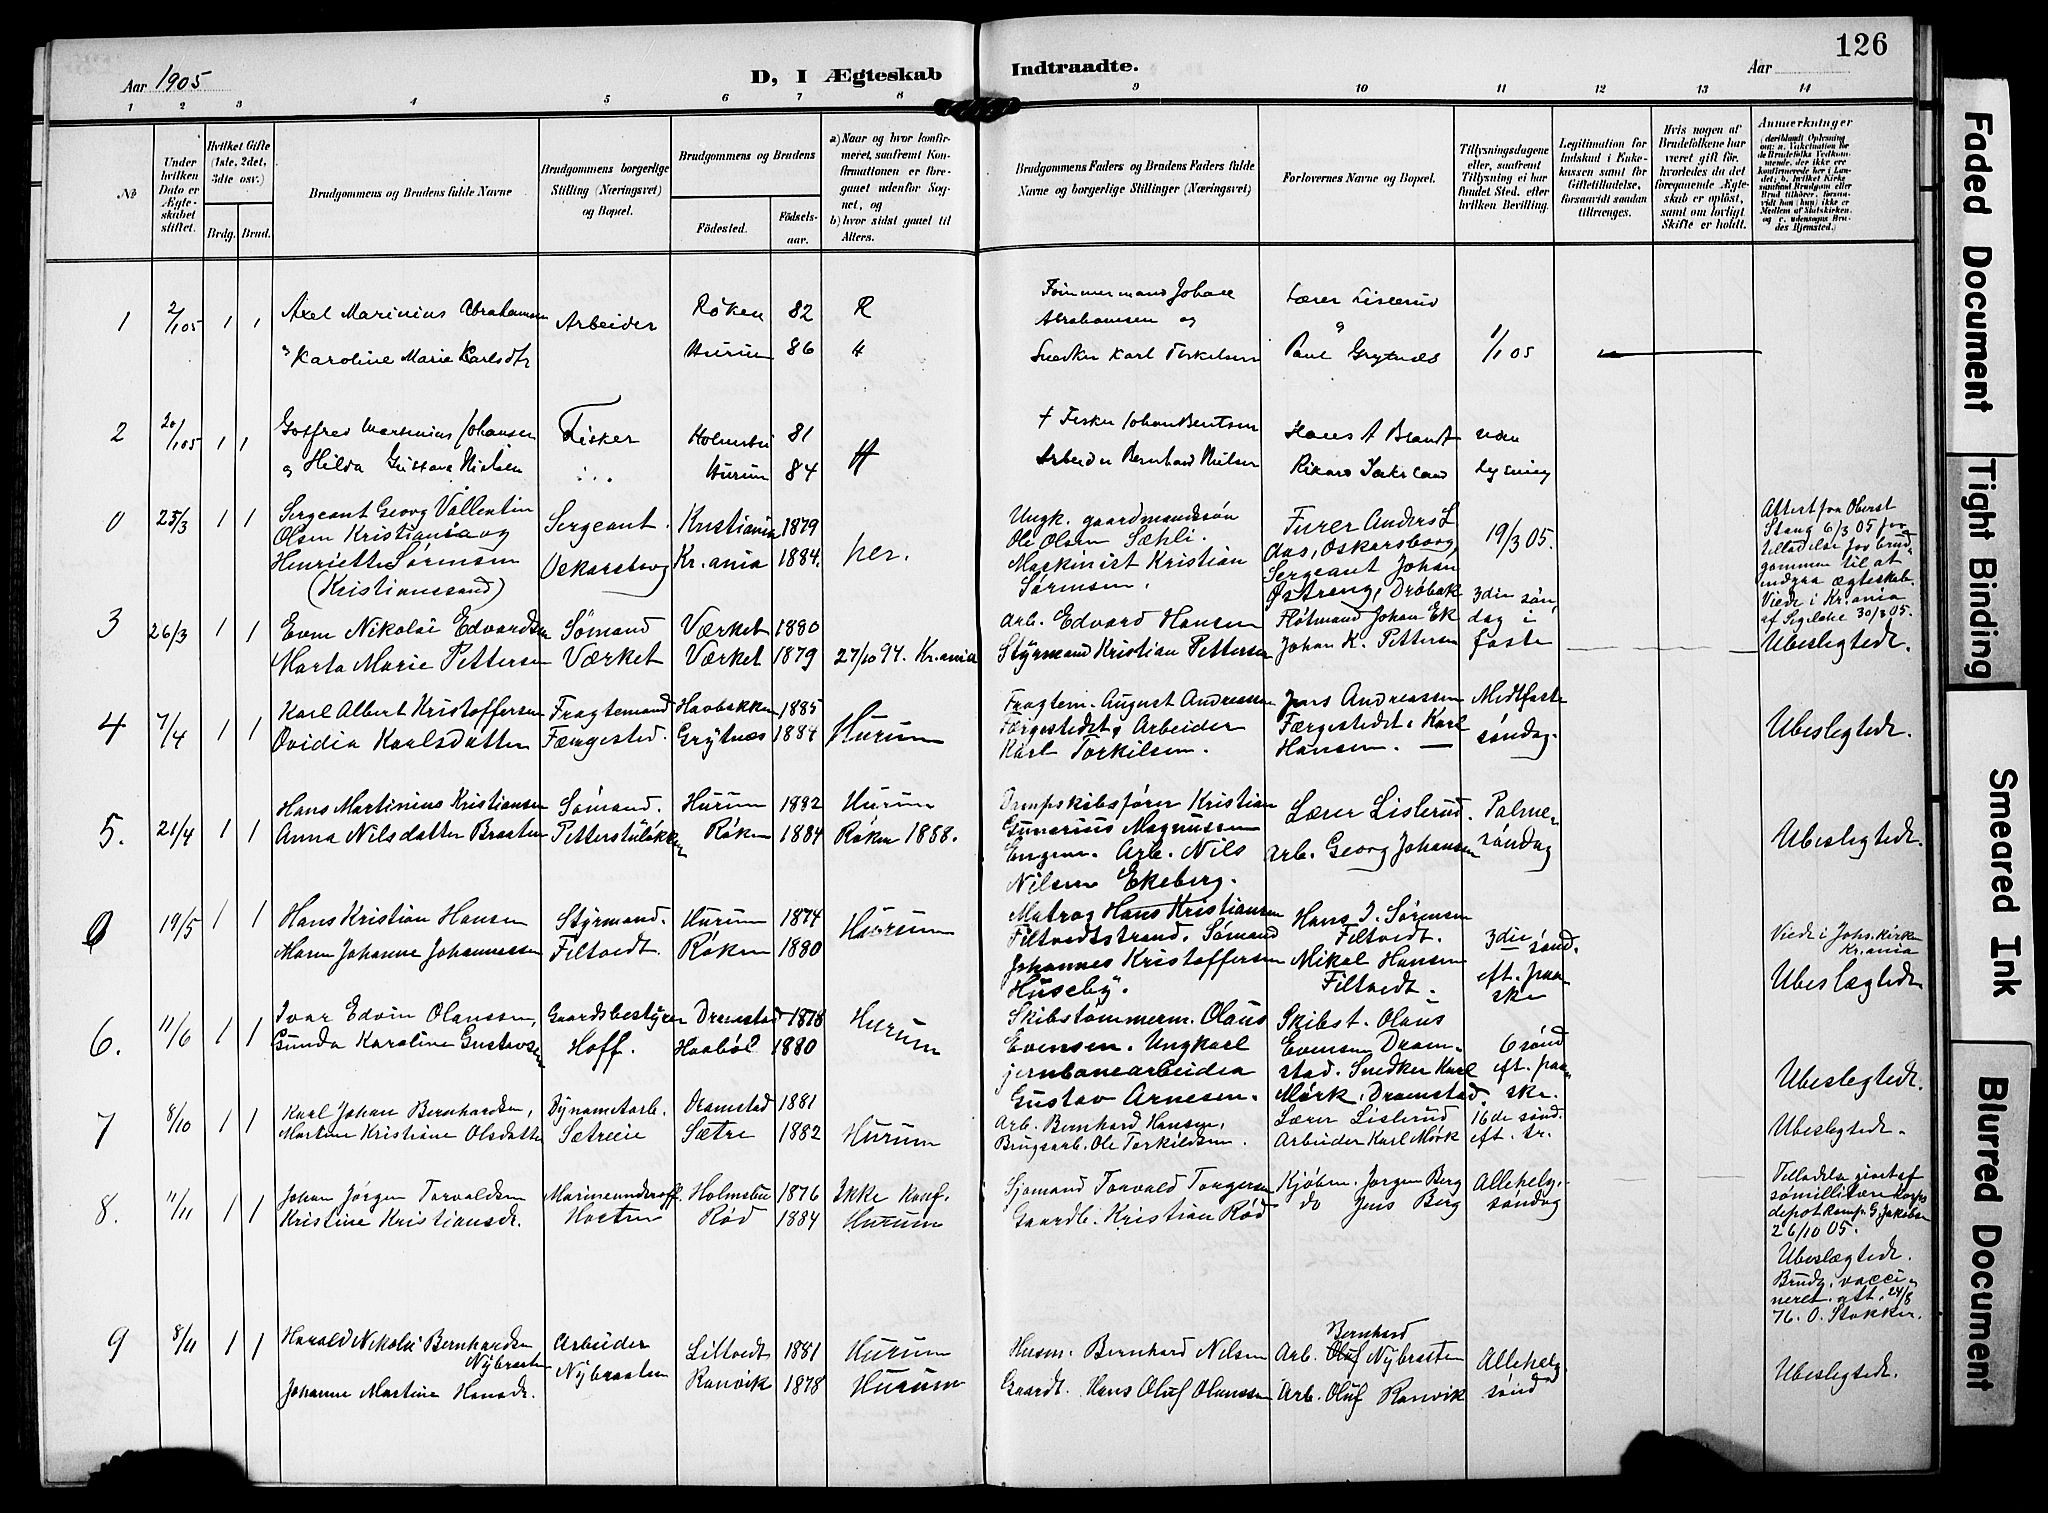 126
Aar 1905
D, I Ægteskab Indtraadte.
Aar
1 2 3 4 5 6 7 8 9 10 11 12 13 14
No
Under hvilken Dato er Ægteskabet stiftet.
Hvilket Gifte (1ste, 2det, 3die osv.)
Brdg. Brud.
Brudgommens og Brudens fulde Navne
Brudgommens borgerlige Stilling (Næringsvei) og Bopæl.
Brudgommens og Brudens
Födested. Födselsaar.
a) Naar og hvor konfirmeret, saafremt Konfirmationen er foregaaet udenfor Sognet, og
b) hvor sidst gaaet til Alters.
Brudgommens Faders og Brudens Faders fulde Navne og borgerlige Stillinger (Næringsvei)
Forlovernes Navne og Bopæl.
Tillysningsdagene eller, saafremt Tillysning ei har fundet Sted, efter hvilken Bevilling.
Legitimation for Indskud i Enkekassen samt for Giftetilladelse, forsaavidt saadan tiltrænges.
Hvis nogen af Brudefolkene har været gift för, hvorledes da det foregaaende Ægteskab er oplöst, samt om lovligt Skifte er holdt.
Anmærkninger
1 2/1 05 1 1 Axel Marinius Abrahamsen Arbeider Röken 82 R Tømmermand Johan Abrahamsen og Lærer Lislerud
Karoline Marie Karlsdtr Hurum 86 Snedker Karl Torkelsen Paul Grytnes 1/1 05
2 20/1 05 1 1 Gotfred Martinius Johansen Fisker Holmsbu 81 H + Fisker Johan Bentsen Hans A Brandt uden
og Hilda Gustava Nielsen Hurum 84 Arbeider Bernhard Nielsen Rikard lysning
0 25/3 1 1 Sergeant Georg Vallentin Olsen Kristiania og Sergeant Kristiania 1879 her. Ungk. gaardmandssön Ole Olsen Sæhli. Furer Anders L Aas, Oskarsborg, 19/3 05.
Henriette Sørensen (Kristianssand) Oskarsborg Kr.ania 1884. Maskinist Kristian Sørensen. Sergeant Johan Østreng, Drøbak
Attest fra Oberst Stang 6/3 05 for tilladelse for brudgommen til at indgaa ægteskab. Viede i Kr.ania af 30/3 05.
3 26/3 1 1 Even Nikolai Edvardsen Sømand Værket 1880 Arb. Edvard Hansen Fløtmand Johan Ek 3die søndag i
Marta Marie Pettersen Værket Værket 1879 27/10 94. Kr.ania Styrmand Kristian Pettersen Johan K. Pettersen faste Ubeslegtede.
4 7/4 1 1 Karl Albert Kristoffersen Fragtemand Havbakken 1885 Hurum Fragtem. August Andreassen Jens Andreassen Midtfaste
Ovidia Karlsdatter Færgested. Grytnæs 1884 Færgestedet, Arbeider Karl Torkilsen. Færgestedet. Karl Hansen. — søndag. Ubeslegtede.
5. 21/4 1 1 Hans Martinius Kristiansen Sømand. Hurum 1882 Hurum Dampskibsfører Kristian Gunerius Magnussen Lærer Lislerud. Palme-
Anna Nilsdatter Braaten Petterstuløkken Røken 1884 Røken 1888. Engem. Arb. Nils Nilsen Ekeberg. Arb. Georg Johansen søndag Ubeslegtede.
0 19/5 1 1 Hans Kristian Hansen Styrmand. Hurum 1874 Hurum Matros Hans Kristiansen Filtvedtstrand. Sømand Hans J. Sørensen Filtvedt. 3die sønd.
Maren Johanne Johannessen Filtvedt. Røken 1880 Johannes Kristoffersen Huseby. Mikal Hansen Filtvedt. eft. paaske
Viede i Johs. kirken Kr.ania Ubeslægtede
6. 11/6 1 1 Ivar Edvin Olaussen, Gaardsbestyrer Dramstad 1878 Hurum Skibstømmerm. Olaus Evensen. Ungkarl Skibst. Olaus Evensen Dramstad. 6 sønd
Gunda Karoline Gustavsen Hoff. Haabøl 1880 jernbanearbeider Gustav Arnesen. Snedker Karl Mørk, Dramstad. eft. paaske. Ubeslegtede.
7 8/10 1 1 Karl Johan Bernhardsen, Dynamitarb. Dramstad 1881 Hurum Arb. Bernhard Hansen, Lærer Lislerud 16de sønd.
Martine Kristiane Olsdatter Sætreie Sætre 1882 Brugsarb. Ole Torkildsen. Arbeider Karl Mørk eft. tr. Ubeslegtede.
8. 11/11 1 1 Johan Jørgen Torvaldsen Marineunderoff. Holmsbu 1876 Ikke konf. Sjømand Torvald Torgersen Kjøbm. Jørgen Berg Allehelg.
Kristine Kristiansdr. Horten Rød 1884 Hurum Gaardb. Kristian Rød do Jens Berg søndag
Tilladelse givet af sømillitære korps depot Komp. G. Jakobsen 26/10 05. Ubeslægtede. Brudg. vaccineret. att. 24/8 76. O. Stokker.
9 8/11 1 1 Harald Nikolai Bernhardsen Nybraaten Arbeider Nybraaten Filtvedt 1881 Hurum Husm. Bernhard Nilsen Arb. Bernhard Nybraaten Allehelg
Johanne Martine Hansdr. Ranvik 1878 Hurum Gaardt. Hans Oluf Olaussen Arb. Oluf Ranvik sønd Ubeslegtede.
Faded Document
Tight Binding
Smeared Ink
Blurred Document